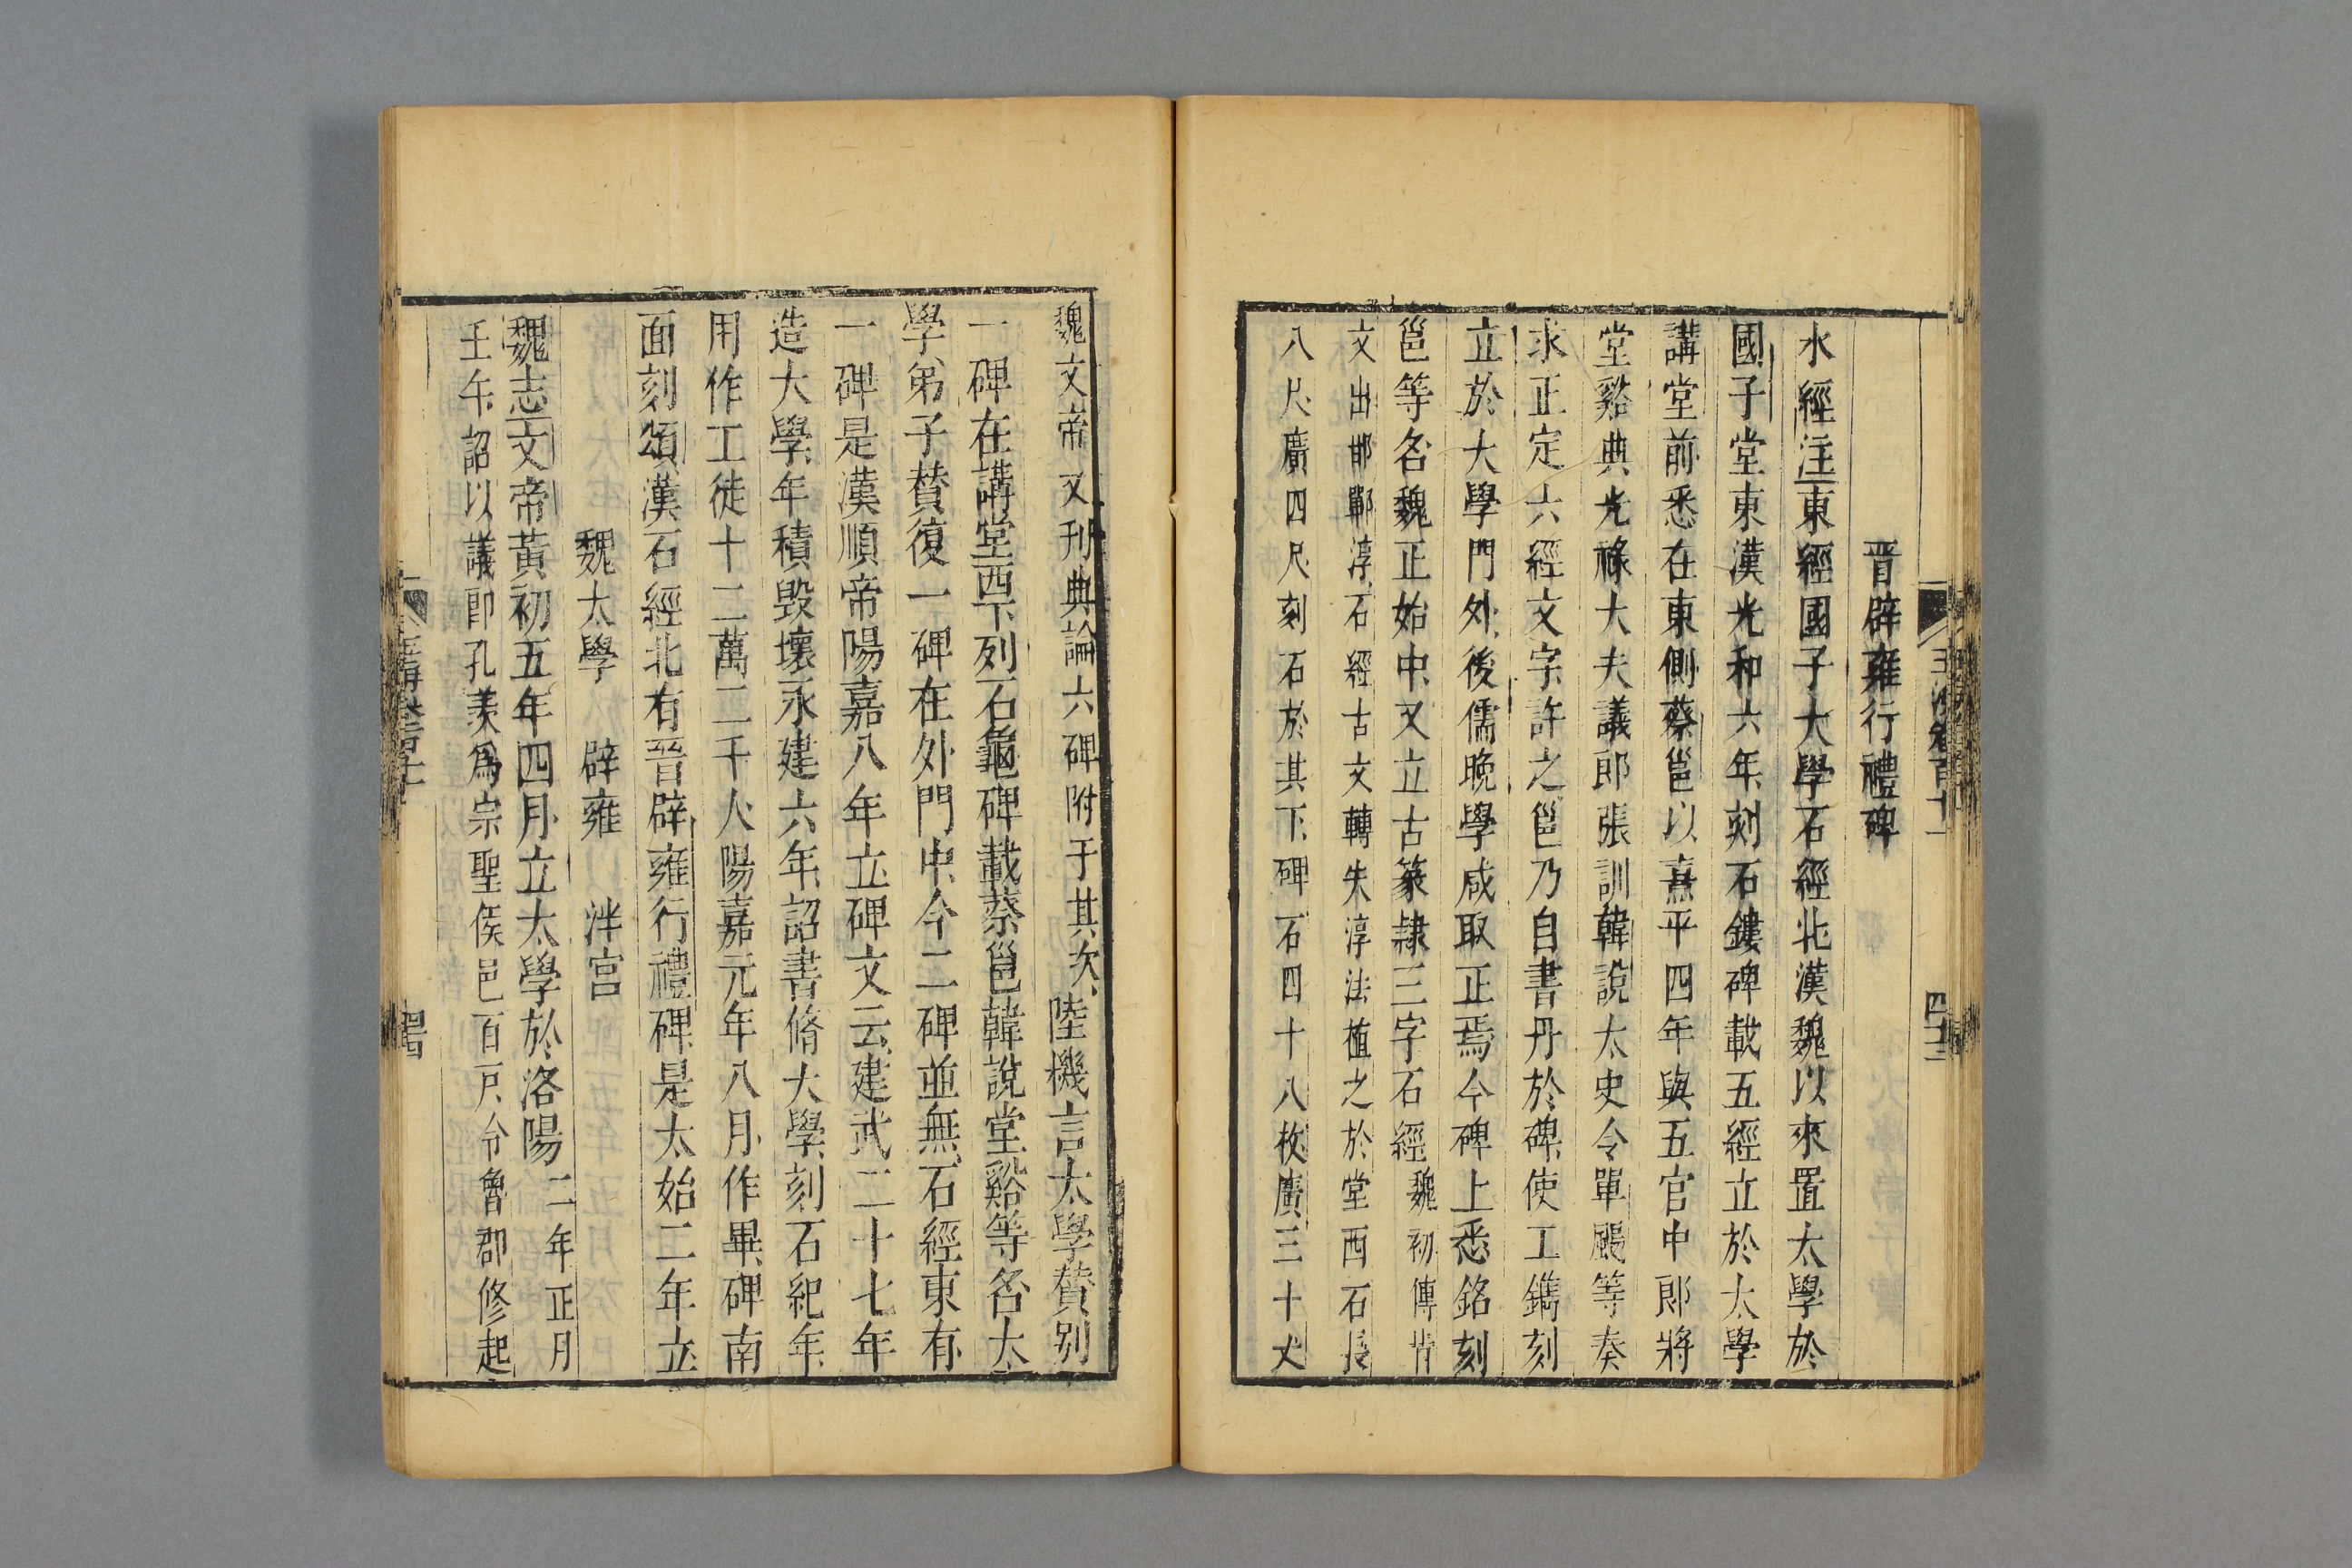 晋辟雍行禮碑
水經注東經國子大學石經北漢魏以來置太學於
國子堂東漢光和六年刻石鏤碑載五經立於太學
講堂前悉在東側蔡邕以熹平四年與五官中郎將
堂谿典光祿大夫議郎張訓韓說太史令單颺等奏
求正定六經文字許之邕乃自書丹於碑使工鐫刻
立於大學門外後儒晚學咸取正焉今碑上悉銘刻
邕等名魏正始中又立古篆隸三字石經魏初傳古
文出邯鄲淳石經古文轉失淳法植之於堂西石長
八尺廣四尺刻石於其下碑石四十八枚廣三十丈
魏文帝又刊典論六碑附于其次陸機言太學贊别
一碑在講堂西下列石龜碑載蔡邕韓說堂谿等名太
學弟子贊復一碑在外門中今二碑並無石經東有
一碑是漢順帝陽嘉八年立碑文云建武二十七年
造大學年積毀壞永建六年詔書脩大學刻石紀年
用作工徒十二萬二千人陽嘉元年八月作畢碑南
面刻頌漢石經北有晉辟雍行禮碑是太始二年立
魏太學 辟雍 泮宫
魏志文帝黃初五年四月立太學於洛陽二年正月
壬午詔以議郎孔羨爲宗聖侯邑百戸令魯郡修起